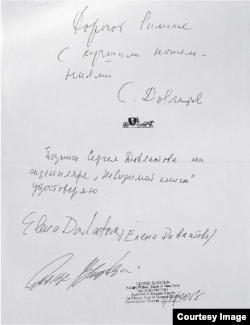 Дорогой Римме
с лучшими пожела-
ниями
С. Довлатов
Подпись Сергея Довлатова на
экземпляре „Невидимой книги"
удостоверяю.
Elena Dovlatova (Елена Довлатова)
Courtesy Image